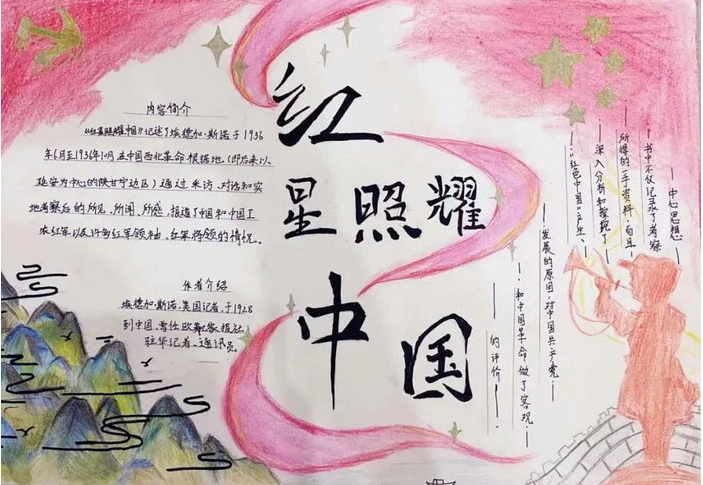 红
星照耀
中国
内容简介
《红星照耀中国》记述了埃德加·斯诺于1936
年6月至1936年10月在中国西北革命根据地(即后来以
延安为中心的陕甘宁边区)通过采访、对话和实
地考察后的所见、所闻、所感,报道了中国和中国工
农红军以及许多红军领袖、红军将领的情况。
作者介绍
埃德加·斯诺,美国记者,于1928
到中国,曾任欧美报社
驻华记者、通讯员。
中心思想
书中不仅记录了考察
所得的一手资料,而且
深入分析和探究了
“红色中国”产生、
发展的原因,对中国共产党
和中国革命做了客观
的评价